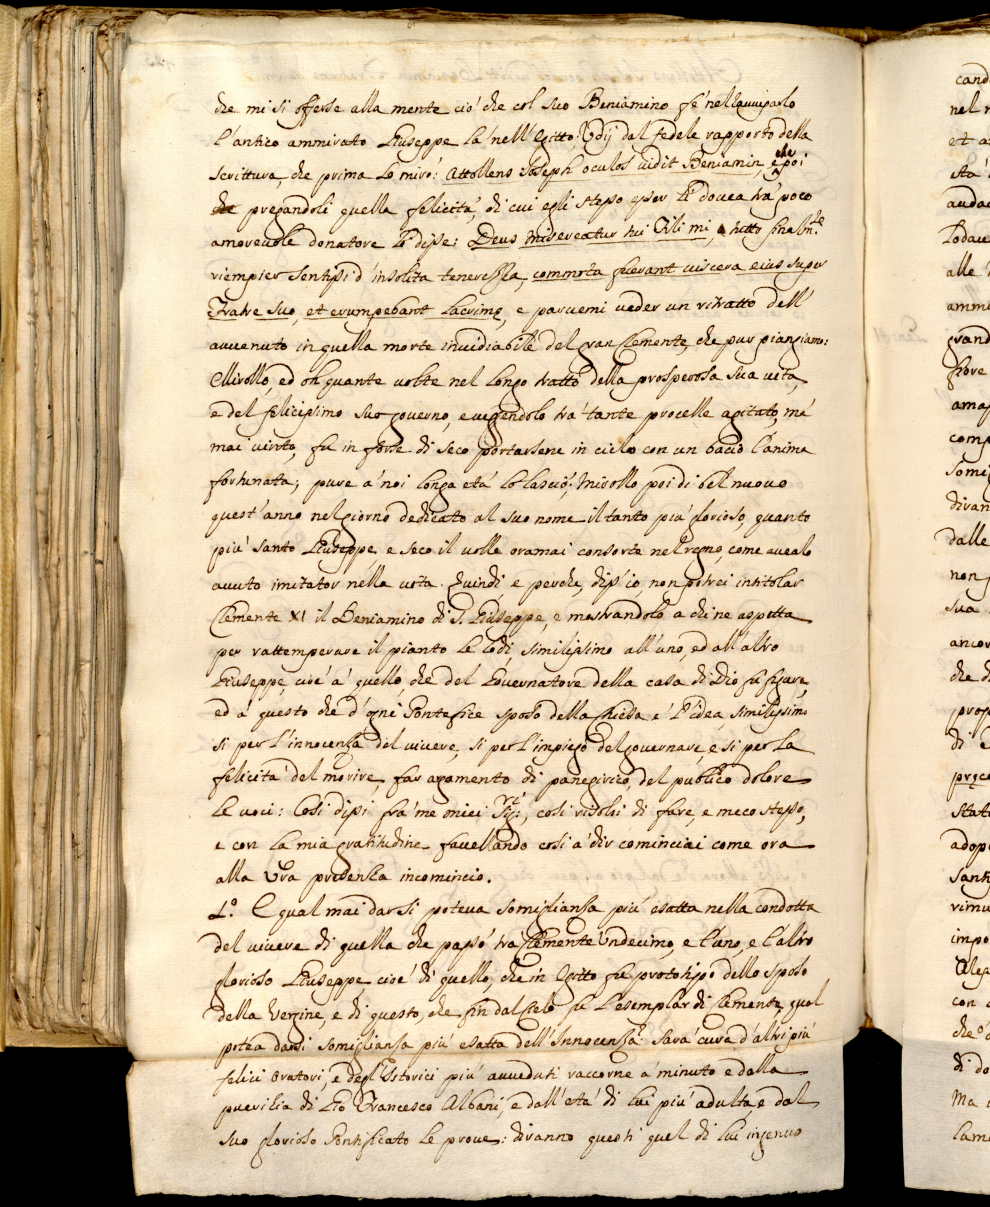 che mi si offerse alla mente ciò che col suo Beniamino fè nell'auuiparlo
l'antico ammirato Giuseppe là nell'Egitto. Udij dal fedele rapporto della
scrittura, che prima lo mirò: Attollens Joseph oculos uidit Beniamin, e che poi
pregandoli quella felicità, di cui egli stesso esser li douea trà poco
amoreuole donatore li disse: Deus misereatur tui Fili mi, e tutto finalm.te
riempier sentissi d'insolita tenerezza, commota fuerant uiscera eius super
Fratre suo, et erumpebant lacrimę, e paruemi ueder un ritratto dell'
auuenuto in quella morte inuidiabile del gran Clemente, che pur piangiamo:
Mirollo, ed oh quante uolte nel longo tratto della prosperosa sua uita,
e del felicissimo suo gouerno, e uegendolo trà tante procelle agitato, mà
mai uinto, fù in forse di seco portarsene in cielo con un bacio l'anima
fortunata; pure à noi longa età lo lasciò; Mirollo poi di bel nuouo
quest'anno nel giorno dedicato al suo nome il tanto più glorioso, quanto
più santo Giuseppe, e seco il uolle oramai consorte nel regno, come auealo
auuto imitator nella uita. Quindi e perche, diss'io, non potrei intitolar
Clemente XI il Beniamino di S. Giuseppe, e mostrandolo a chi ne aspetta
per rattemperare il pianto le lodi, similissimo all'uno, ed all'altro
Giuseppe, cioè à quello, che del Gouernatore della casa di Dio fù figura,
ed à questo che d'ogni Pontefice sposo della Chiesa è l'idea, similissimo
si per l'innocenza del uiuere, si per l'impiego del gouernare, e si per la
felicità del morire, far argomento di panegirico, del publico dolore
le uoci: Così dissi frà me miei Sig.ri, così risolsi di fare, e meco stesso,
e con la mia gratitudine fauellando così à dir cominciai come ora
alla Vra prudenza incomincio.
1.º E qual mai darsi poteua somiglianza più esatta nella condotta
del uiuere di quella che passò trà Clemente Undecimo, e l'uno, e l'altro
glorioso Giuseppe cioè di quello, che in Egitto fù prototipo dello sposo
della Vergine, e di questo, che fin dal Cielo fù l'esemplar di Clemente, qual
potea darsi somiglianza più esatta dell'Innocenza? Sarà cura d'altri più
felici Oratori, e degl'Istorici più auueduti raccorne à minuto e dalla
puerilia di Gio Francesco Albani, e dall'età di lui più adulta, e dal
suo glorioso Pontificato le proue: diranno questi quel di lui ingenuo